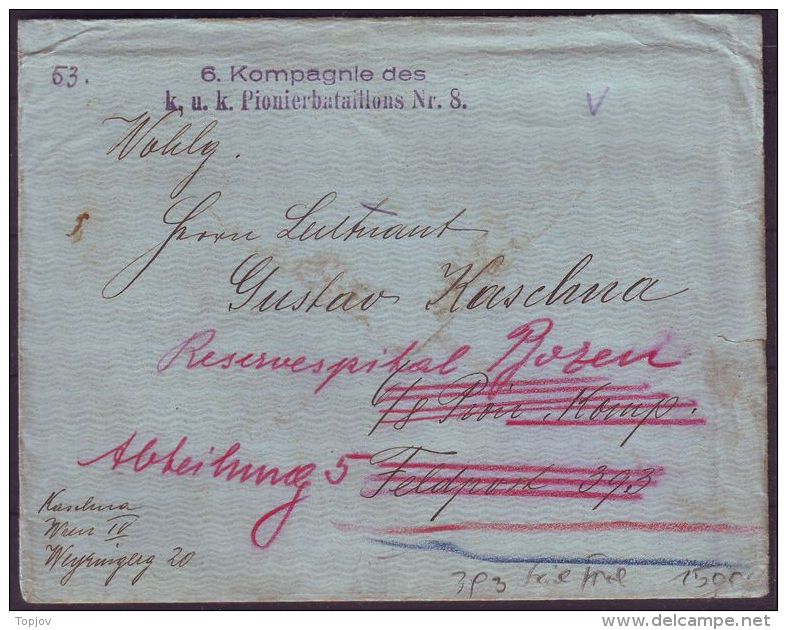 53.
6. Kompagnie des
k. u. k. Pionierbataillons Nr. 8.
V
Wohlg.
Herrn Leutnant
Gustav Kaschna
Reservespital Bozen
/8 Pion. Komp.
Abteilung 5
Feldpost 393
Kaschna
Wien IV
Weyringerg 20
393
Topjov
delcampe.net